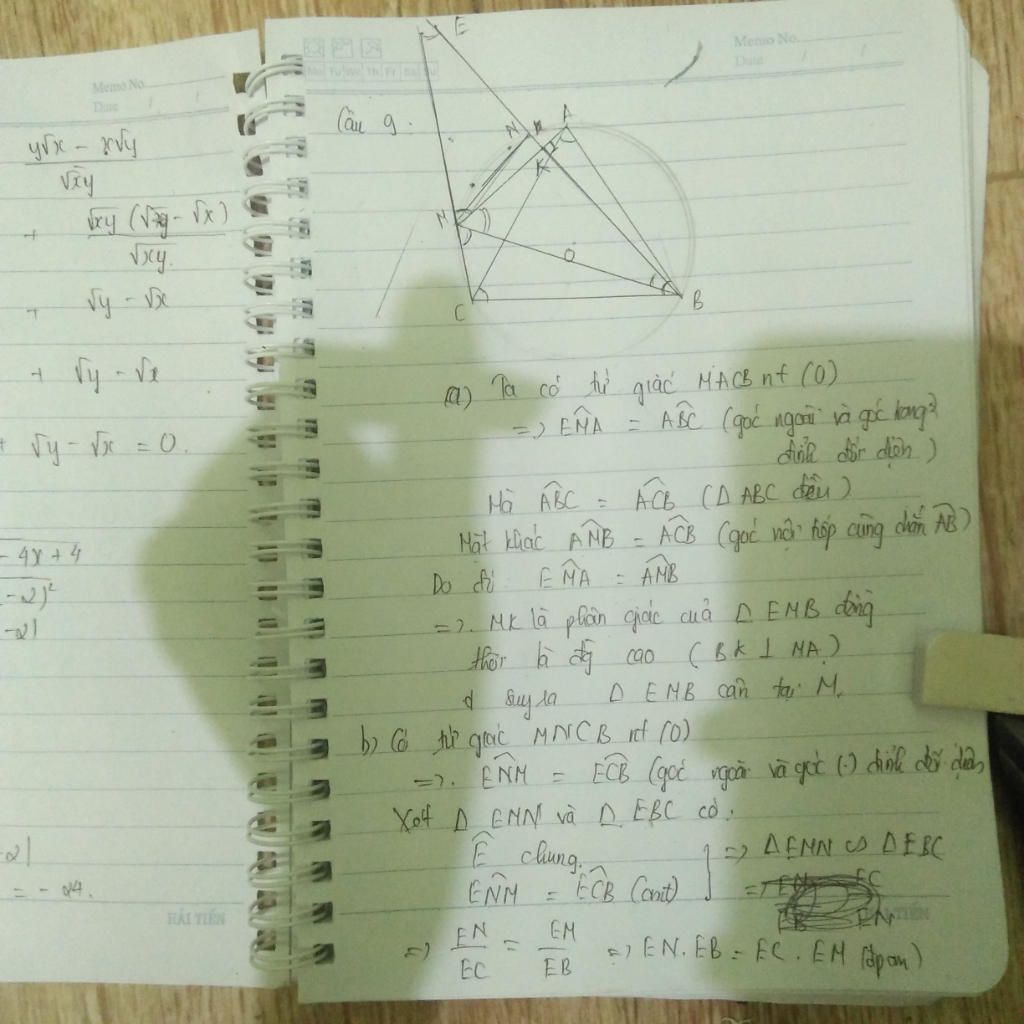 Memo No.
Date / /
y√x - x√y
√xy
√xy (√y - √x)
√xy.
√y - √x
√y - √x
+ √y - √x = 0.
- 4x + 4
- 2)²
- 2|
- 2|
= - 24.
HẢI TIẾN
Mo Tu We Th Fr Sa Su
Memo No.
Date / /
Câu 9:
E
N A
K
M
O
C B
a) Ta có tứ giác MACB nt (O)
=> EMA = ABC (góc ngoài và góc trong
đỉnh đối diện)
Mà ABC = ACB (Δ ABC đều)
Mặt khác AMB = ACB (góc nội tiếp cùng chắn AB)
Do đó EMA = AMB
=> MK là phân giác của Δ EMB đồng
thời là đg cao (BK ⊥ MA)
suy ra Δ EMB cân tại M.
b) Có tứ giác MNCB nt (O)
=> ENM = ECB (góc ngoài và góc (.) đỉnh đối diện
Xét Δ EMN và Δ EBC có:
E chung.
ENM = ECB (cmt)
=> Δ EMN ∽ Δ EBC
=> EN/EC = EM/EB => EN.EB = EC.EM (đpcm)